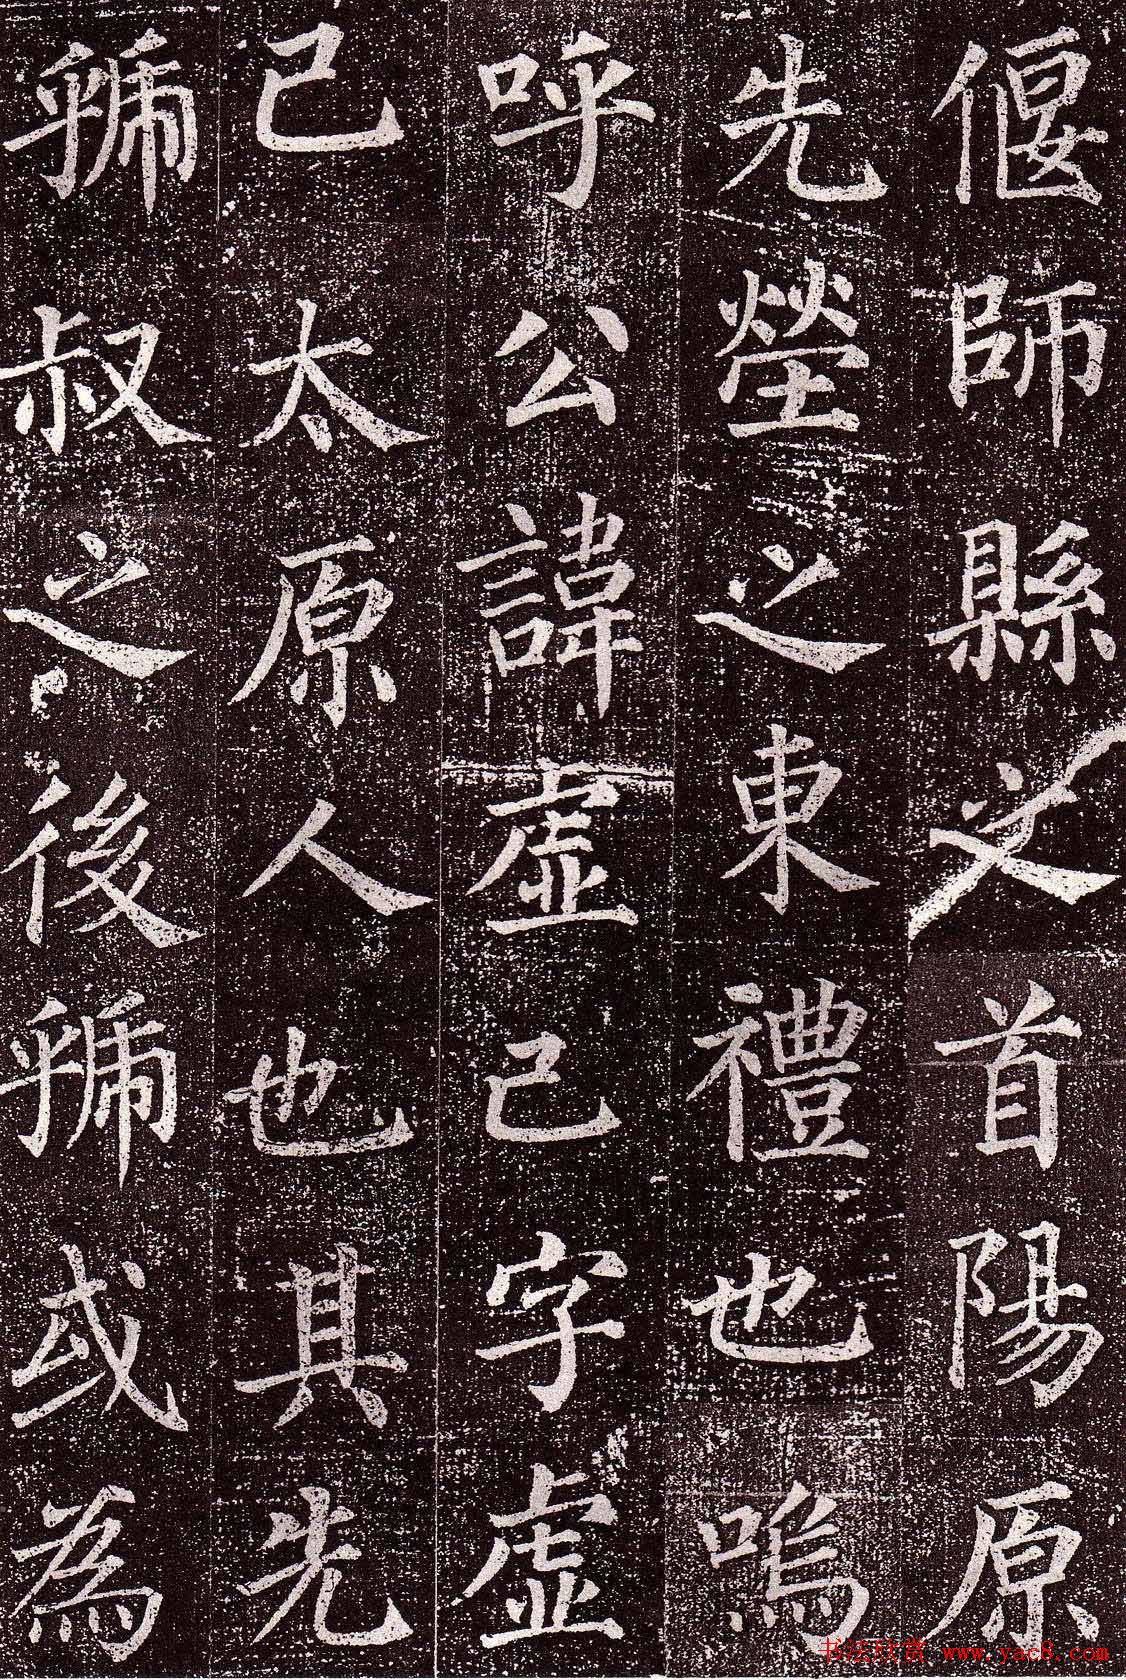 偃師縣之首陽原
先塋之東禮也嗚
呼公諱虛己字虛
己太原人也其先
虢叔之後虢或為
书法欣赏 www.yac8.com